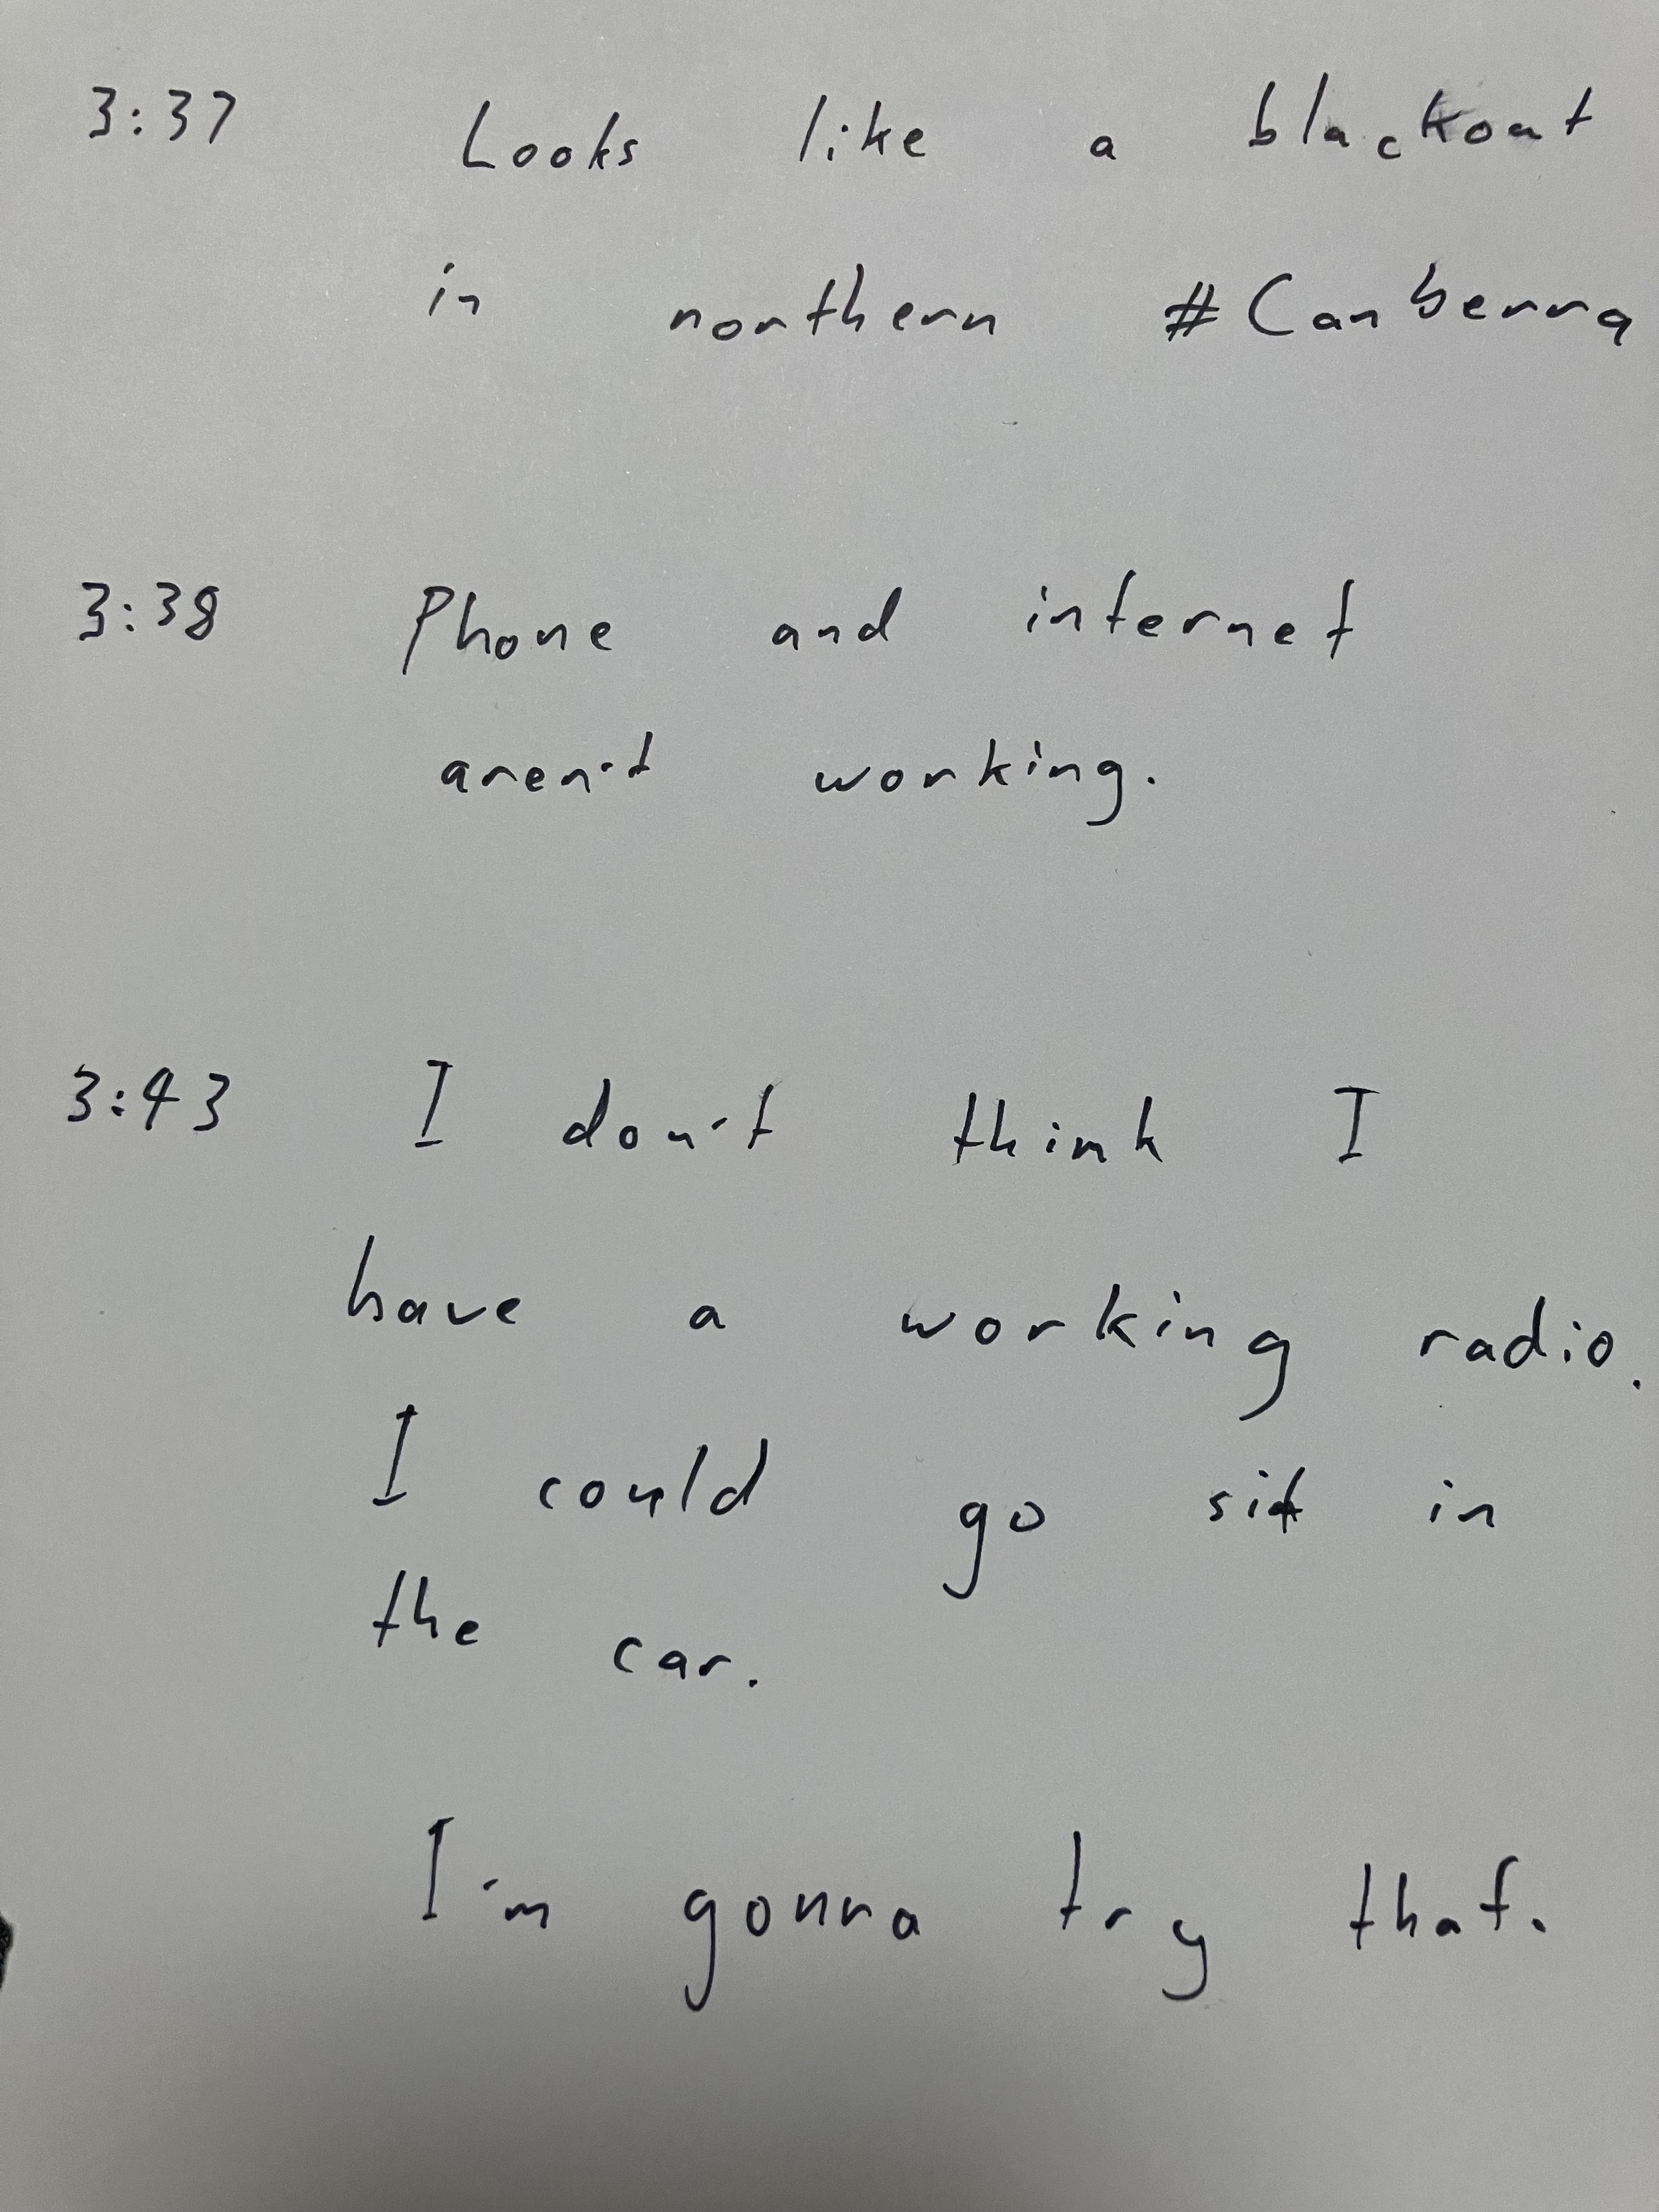 3:37 Looks like a blackout
in northern #Canberra
3:38 Phone and internet
aren't working.
3:43 I don't think I
have a working radio.
I could go sit in
the car.
I'm gonna try that.